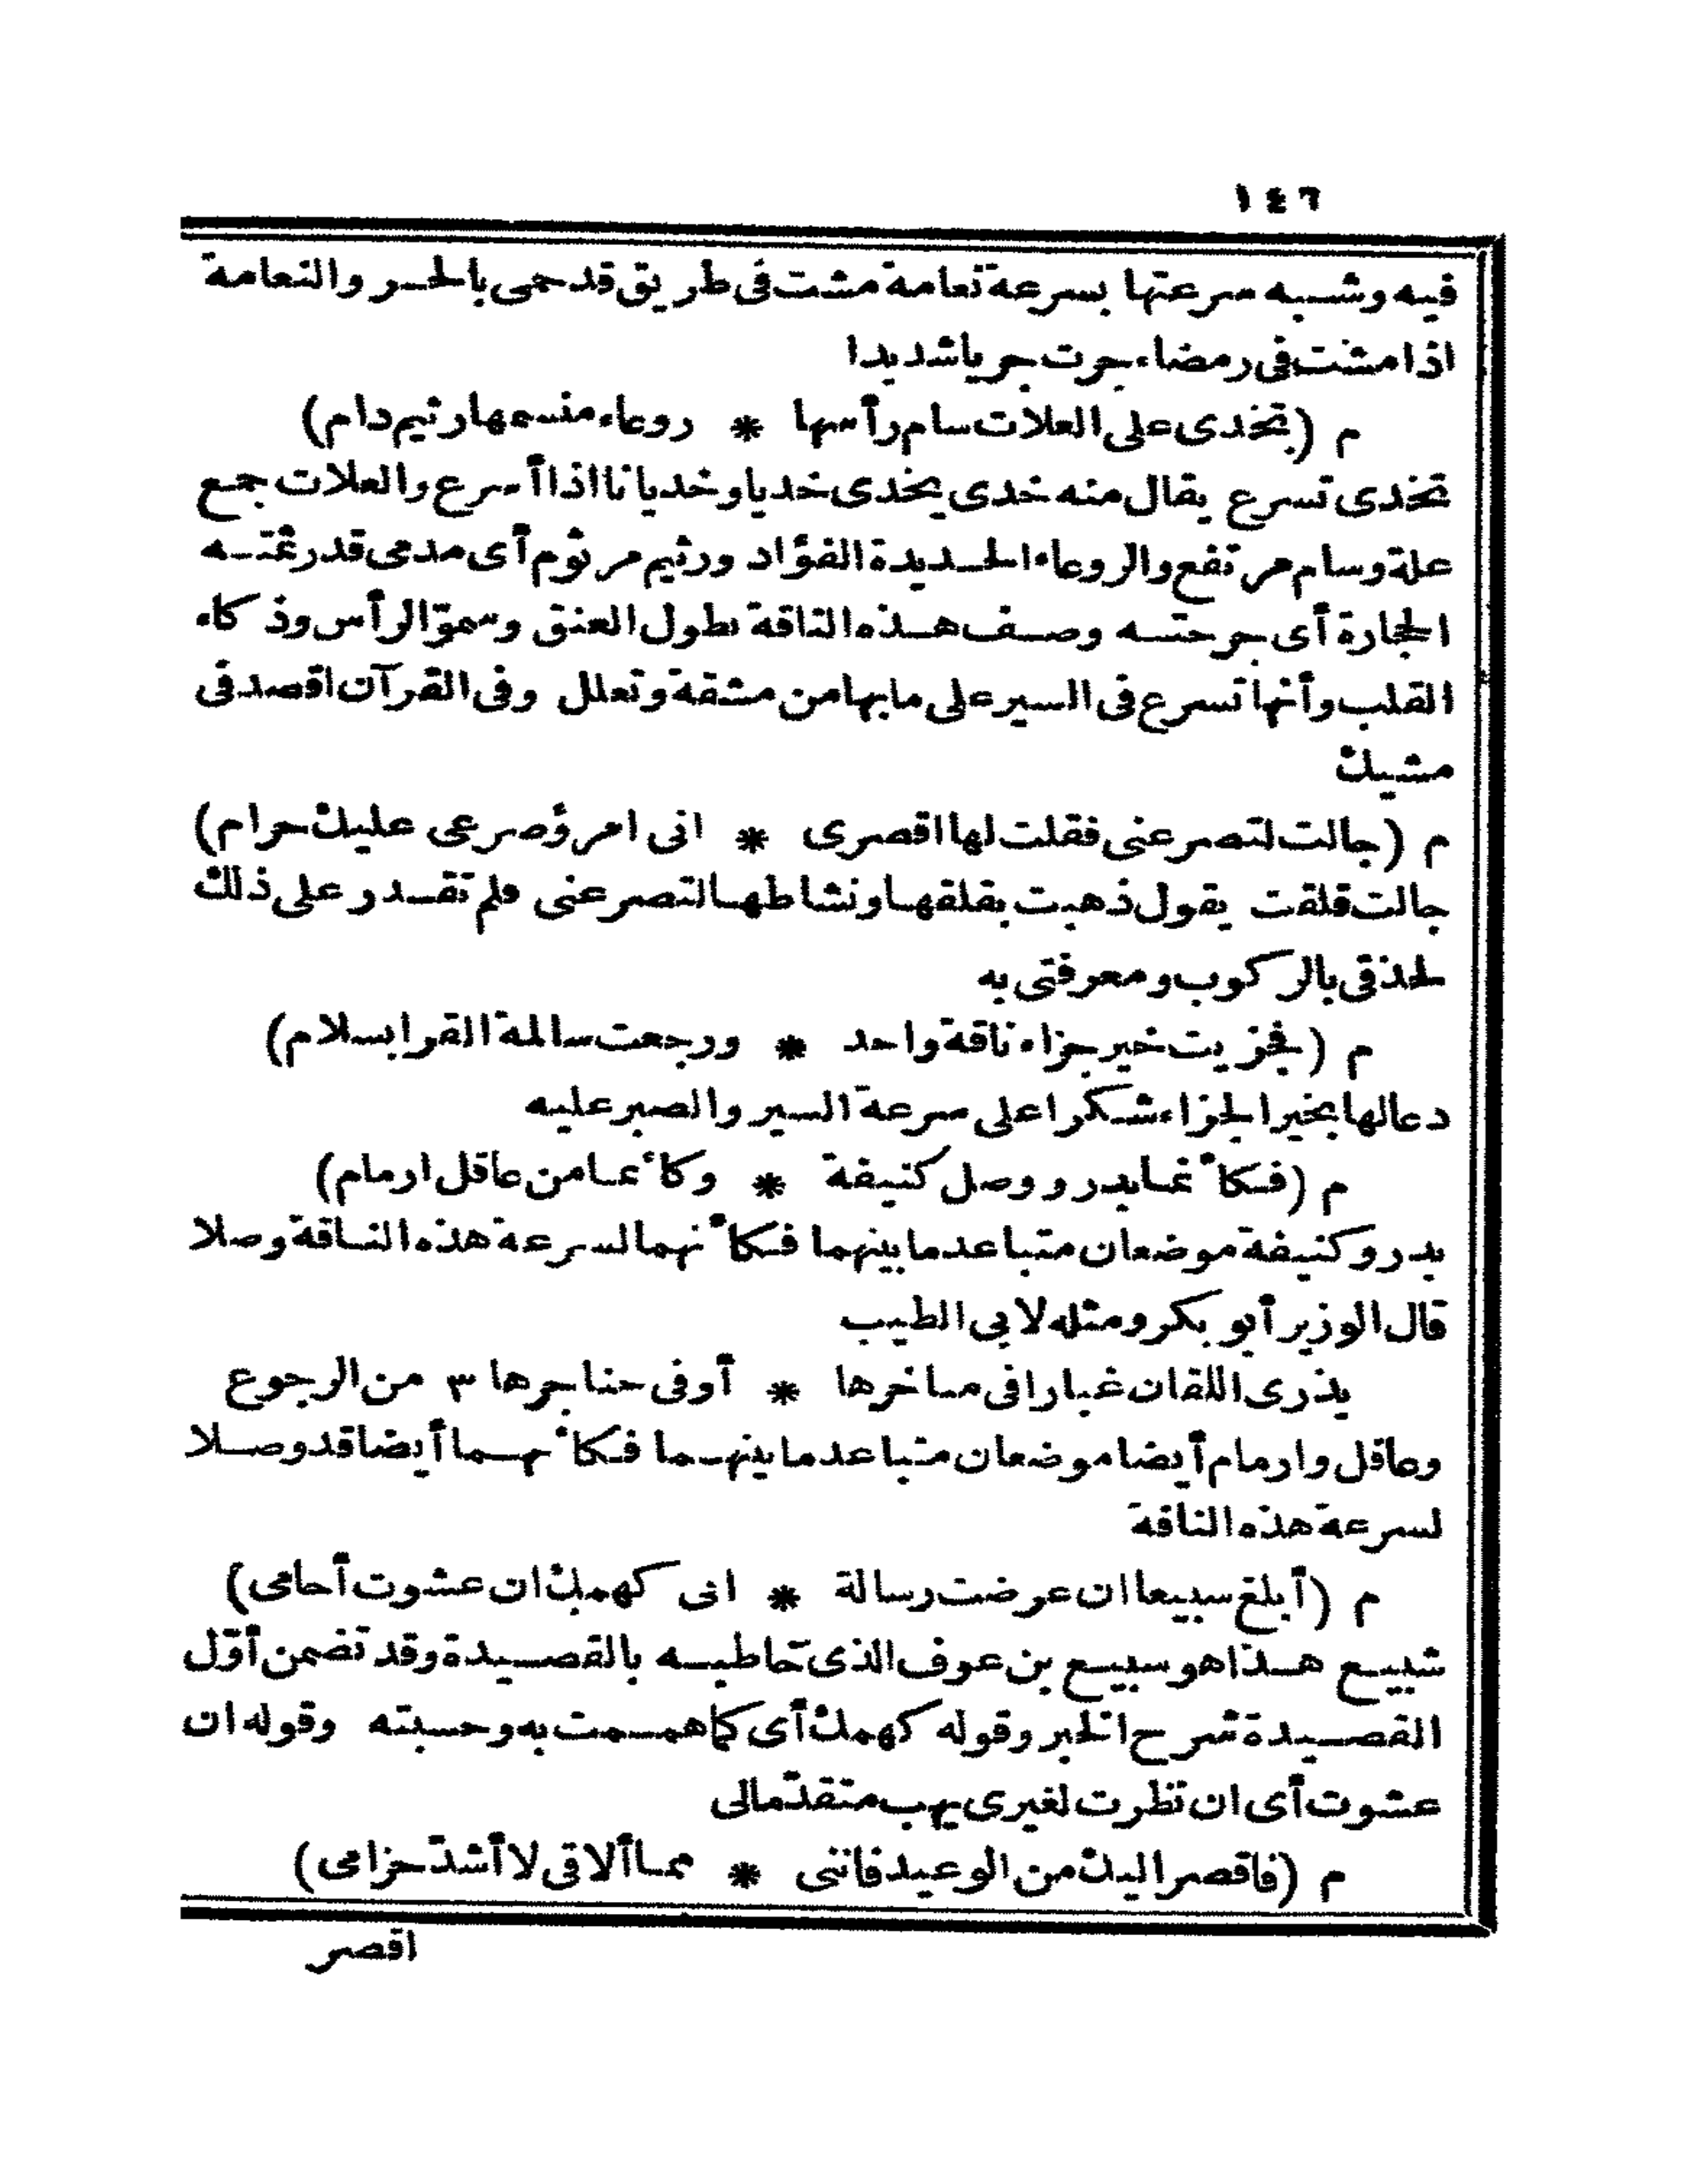 ١٤٦
فيه وشبه سرعتها بسرعة نعامة مشت فى طريق قد حمى بالحر والنعامة
اذا مشت فى رمضاء جرت جريا شديدا
م (تخدى على العلات سام رأسها * روعاء منسمها رثيم دام)
تخدى تسرع يقال منه خدى يخدى خديا وخديانا اذا أسرع والعلات جمع
علة وسام مرتفع والروعاء الحديدة الفؤاد ورثيم مرثوم أى مدمى قد رثمته
الحجارة أى جرحته وصف هذه الناقة بطول العنق وسموّ الرأس وذكاء
القلب وأنها تسرع فى السير على ما بها من مشقة وتعلل وفى القرآن اقصد فى
مشيك
م (جالت لتصرعنى فقلت لها اقصرى * انى امرؤ صرعى عليك حرام)
جالت قلقت يقول ذهبت بقلقها ونشاطها لتصرعنى فلم تقدر على ذلك
لحذقى بالركوب ومعرفتى به
م (فجزيت خير جزاء ناقة واحد * ورجعت سالمة القرا بسلام)
دعا لها بخير الجزاء شكرا على سرعة السير والصبر عليه
م (فكأنما بدر ووصل كنيفة * وكأنما من عاقل ارمام)
بدر وكنيفة موضعان متباعد ما بينهما فكأنهما لسرعة هذه الناقة وصلا
قال الوزير أبو بكر ومثله لابى الطيب
يذرى اللقان غبارا فى مناخرها * أوفى حناجرها ٣ من الرجوع
وعاقل وارمام أيضا موضعان متباعد ما بينهما فكأنهما أيضا قد وصلا
لسرعة هذه الناقة
م (أبلغ سبيعا ان عرضت رسالة * انى كهمك ان عشوت أمامى)
شبيع هذا هو سبيع بن عوف الذى خاطبه بالقصيدة وقد تضمن أوّل
القصيدة شرح الخبر وقوله كهمك أى كما هممت به وحسبته وقوله ان
عشوت أى ان نظرت لغيرى يهب متقدّما لى
م (فاقصر اليك من الوعيد فاننى * مما ألاقى لا أشدّ حزامى)
اقصر